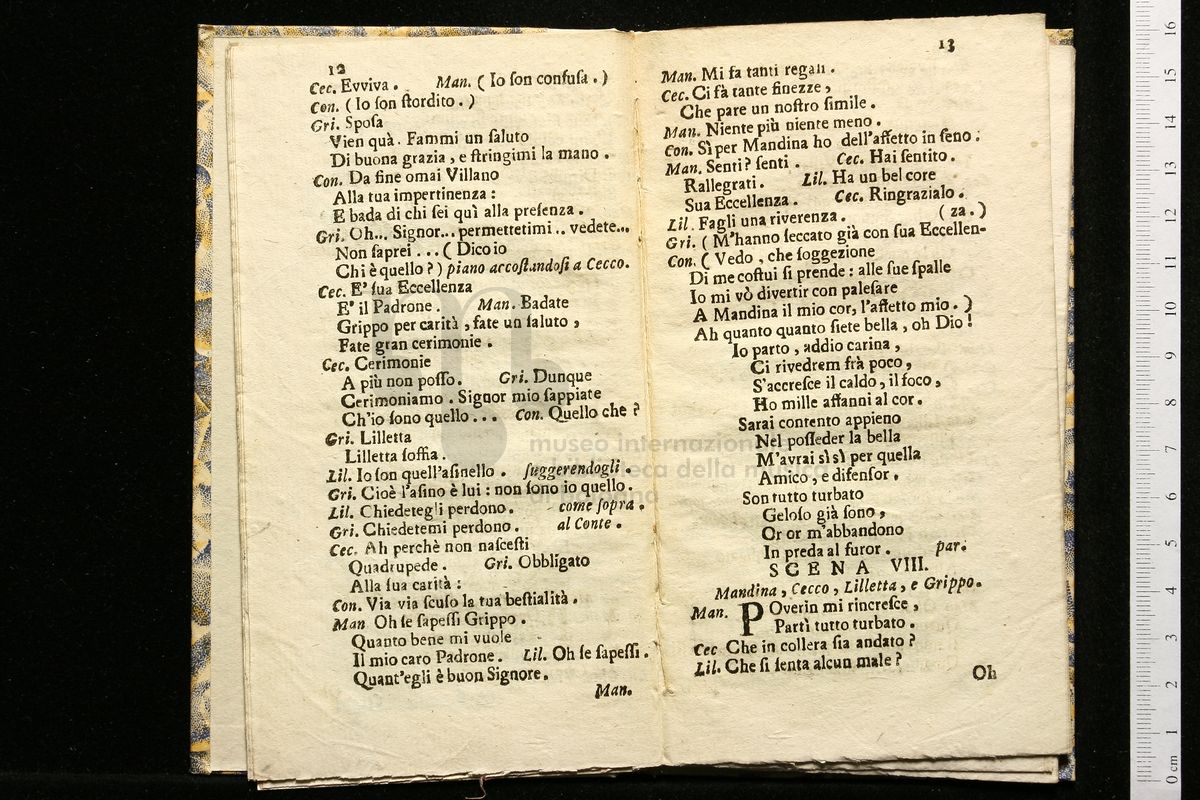 12
Cec. Evviva. Man. ( Io ſon confuſa. )
Con. ( Io ſon ſtordito. )
Gri. Spoſa
Vien quà. Fammi un ſaluto
Di buona grazia, e ſtringimi la mano.
Con. Da fine omai Villano
Alla tua impertinenza:
E bada di chi ſei quì alla preſenza.
Gri. Oh... Signor... permettetimi.. vedete...
Non ſaprei... ( Dico io
Chi è quello? ) piano accoſtandoſi a Cecco.
Cec. E' ſua Eccellenza
E' il Padrone. Man. Badate
Grippo per carità, fate un ſaluto,
Fate gran cerimonie.
Cec. Cerimonie
A più non poſſo. Gri. Dunque
Cerimoniamo. Signor mio ſappiate
Ch'io ſono quello... Con. Quello che?
Gri. Lilletta
Lilletta ſoffia.
Lil. Io ſon quell'aſinello. ſuggerendogli.
Gri. Cioè l'aſino è lui: non ſono io quello.
Lil. Chiedetegli perdono. come ſopra.
Gri. Chiedetemi perdono. al Conte.
Cec. Ah perchè non naſceſti
Quadrupede. Gri. Obbligato
Alla ſua carità:
Con. Via via ſcuſo la tua beſtialità.
Man Oh ſe ſapeſſi Grippo.
Quanto bene mi vuole
Il mio caro Padrone. Lil. Oh ſe ſapeſſi.
Quant'egli è buon Signore.
Man.
13
Man. Mi fa tanti regali.
Cec. Ci fà tante finezze,
Che pare un noſtro ſimile.
Man. Niente più niente meno.
Con. Sì per Mandina ho dell'affetto in ſeno.
Man. Senti? ſenti. Cec. Hai ſentito.
Rallegrati. Lil. Ha un bel core
Sua Eccellenza. Cec. Ringrazialo.
Lil. Fagli una riverenza. ( za. )
Gri. ( M'hanno ſeccato già con ſua Eccellen-
Con. ( Vedo, che ſoggezione
Di me coſtui ſi prende: alle ſue ſpalle
Io mi vò divertir con paleſare
A Mandina il mio cor, l'affetto mio. )
Ah quanto quanto ſiete bella, oh Dio!
Io parto, addio carina,
Ci rivedrem frà poco,
S'accreſce il caldo, il foco,
Ho mille affanni al cor.
Sarai contento appieno
Nel poſſeder la bella
M'avrai sì sì per quella
Amico, e difenſor.
Son tutto turbato
Geloſo già ſono,
Or or m'abbandono
In preda al furor. par.
SCENA VIII.
Mandina, Cecco, Lilletta, e Grippo.
Man. POverin mi rincreſce,
Partì tutto turbato.
Cec Che in collera ſia andato?
Lil. Che ſi ſenta alcun male?
Oh
museo internazion
teca della musica
0 cm 1 2 3 4 5 6 7 8 9 10 11 12 13 14 15 16